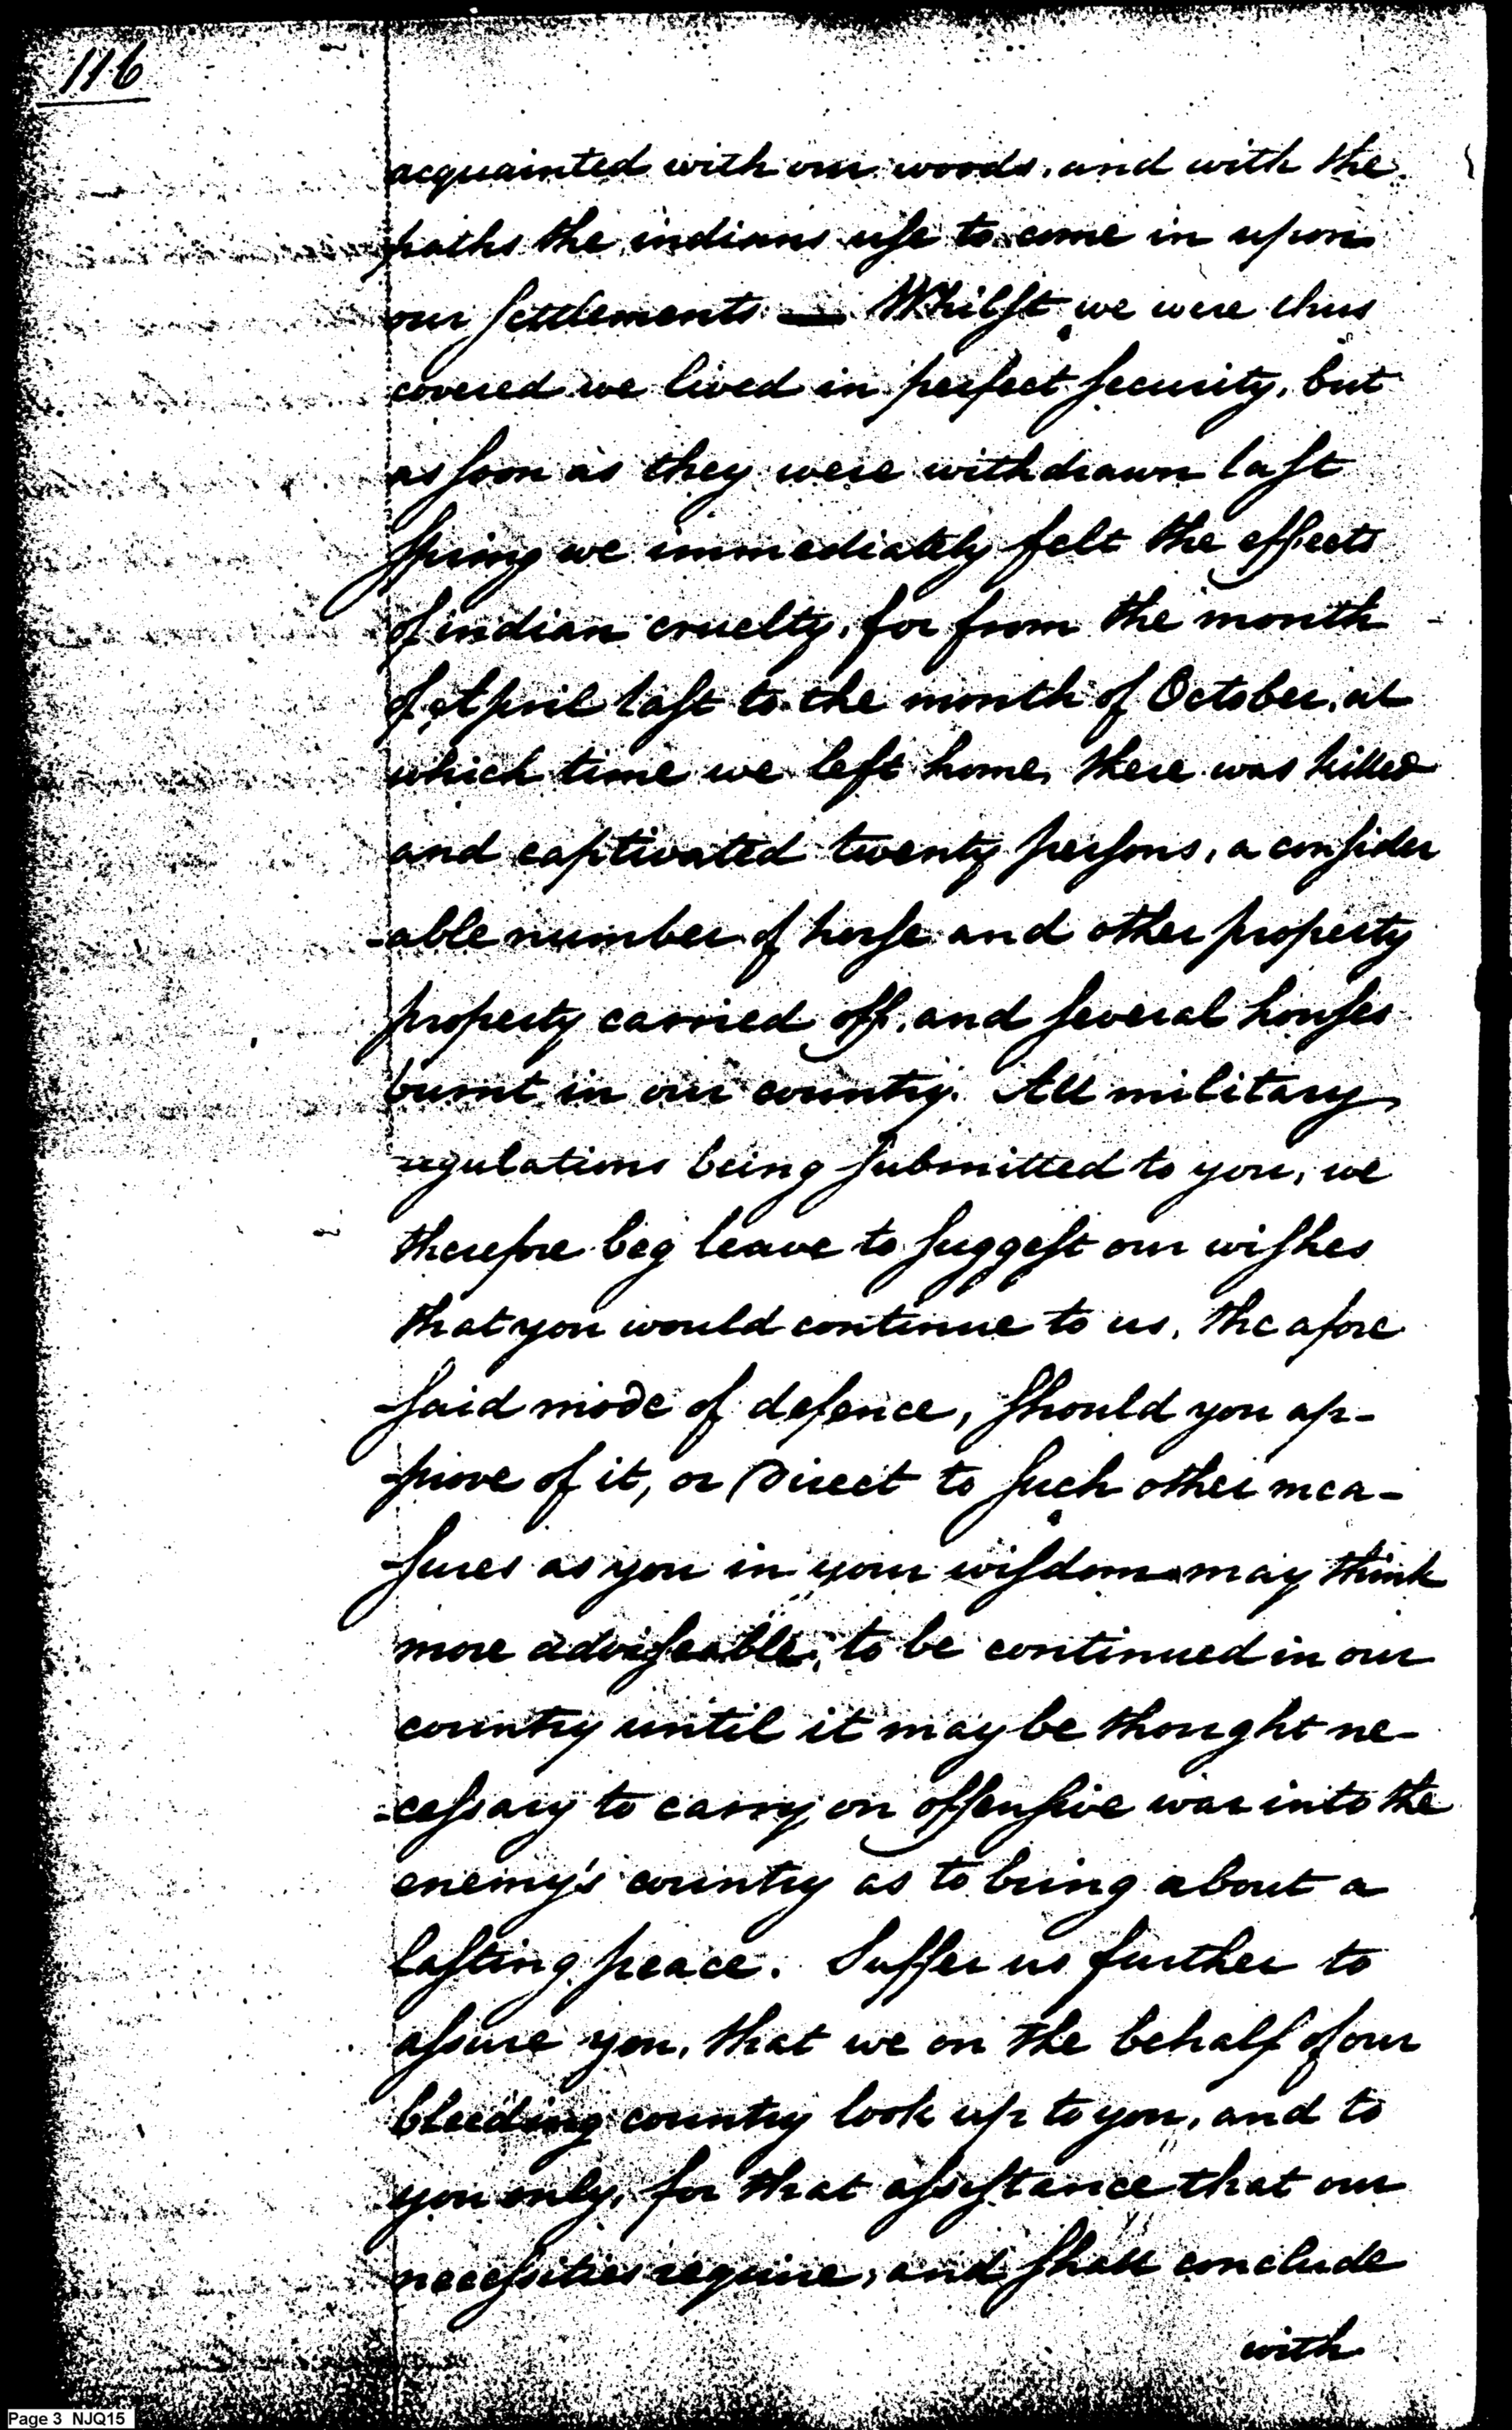 116
acquainted with our woods, and with the
paths the indians use to come in upon
our settlements — Whilst we were thus
covered we lived in perfect security, but
as soon as they were withdrawn last
spring we immediately felt the effects
of indian cruelty, for from the month
of April last to the month of October, at
which time we left home, there was killed
and captivated twenty persons, a consider
-able number of horse and other property
property carried off, and several houses
burnt in our country. All military
regulations being submitted to you, we
therefore beg leave to suggest our wishes
that you would continue to us, the afore
-said mode of defence, should you ap-
-prove of it, or Direct to such other mea-
-sures as you in your wisdom may think
more adviseable, to be continued in our
country until it may be thought ne-
-cessary to carry on offensive war into the
enemy's country as to bring about a
lasting peace. Suffer us further to
assure you, that we on the behalf of our
bleeding country look up to you, and to
you only, for that assistance that our
necessities require, and shall conclude
with
Page 3 NJQ15